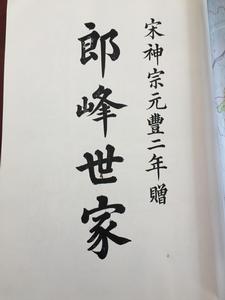 宋神宗元豐二年贈
郎峰世家